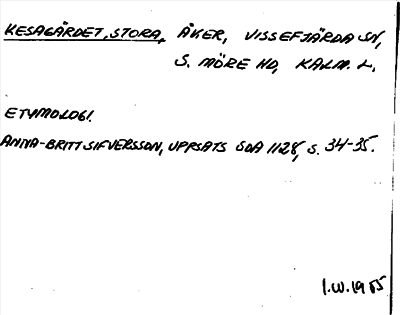 KESAGÄRDET, STORA, ÅKER, VISSEFJÄRDA SN,
S. MÖRE HD, KALM. L.
ETYMOLOGI.
ANNA-BRITT SIFVERSSON, UPPSATS SOA 1128, S. 34-35.
I.W. 1985